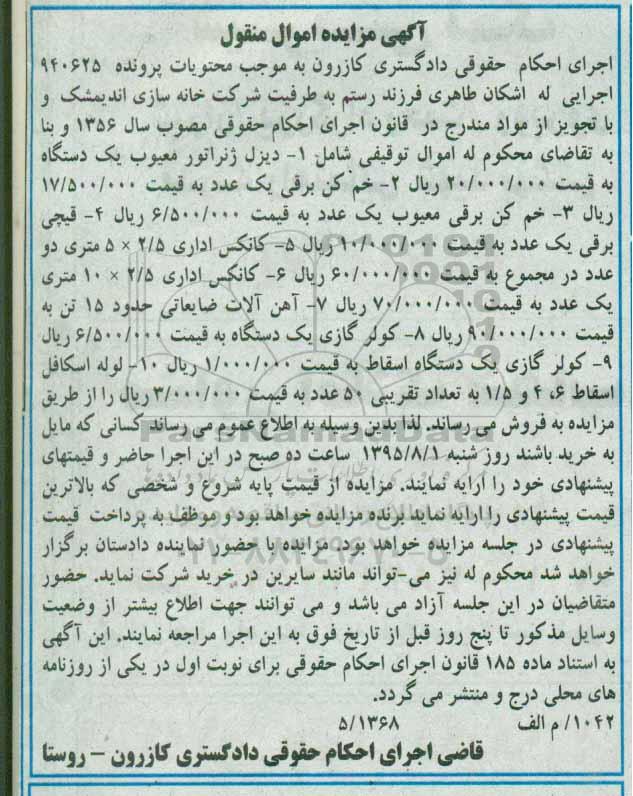 آگهی مزایده اموال منقول
اجرای احکام حقوقی دادگستری کازرون به موجب محتویات پرونده ۹۴۰۶۲۵
اجرایی له اشکان طاهری فرزند رستم به طرفیت شرکت خانه سازی اندیمشک و
با تجویز از مواد مندرج در قانون اجرای احکام حقوقی مصوب سال ۱۳۵۶ و بنا
به تقاضای محکوم له اموال توقیفی شامل: ۱- دیزل ژنراتور معیوب یک دستگاه
به قیمت ۲۰/۰۰۰/۰۰۰ ریال ۲- خم کن برقی یک عدد به قیمت ۱۷/۵۰۰/۰۰۰
ریال ۳- خم کن برقی معیوب یک عدد به قیمت ۶/۵۰۰/۰۰۰ ریال ۴- قیچی
برقی یک عدد به قیمت ۱۰/۰۰۰/۰۰۰ ریال ۵- کانکس اداری ۲/۵ × ۵ متری دو
عدد در مجموع به قیمت ۶۰/۰۰۰/۰۰۰ ریال ۶- کانکس اداری ۲/۵ × ۱۰ متری
یک عدد به قیمت ۷۰/۰۰۰/۰۰۰ ریال ۷- آهن آلات ضایعاتی حدود ۱۵ تن به
قیمت ۹۱/۰۰۰/۰۰۰ ریال ۸- کولر گازی یک دستگاه به قیمت ۶/۵۰۰/۰۰۰ ریال
۹- کولر گازی یک دستگاه اسقاط به قیمت ۱/۰۰۰/۰۰۰ ریال ۱۰- لوله اسکافل
اسقاط ۶، ۴ و ۱/۵ به تعداد تقریبی ۵۰ عدد به قیمت ۳/۰۰۰/۰۰۰ ریال را از طریق
مزایده به فروش می رساند. لذا بدین وسیله به اطلاع عموم می رساند کسانی که مایل
به خرید باشند روز شنبه ۱۳۹۵/۸/۱ ساعت ده صبح در این اجرا حاضر و قیمتهای
پیشنهادی خود را ارایه نمایند. مزایده از قیمت پایه شروع و شخصی که بالاترین
قیمت پیشنهادی را ارایه نماید برنده مزایده خواهد بود و موظف به پرداخت قیمت
پیشنهادی در جلسه مزایده خواهد بود. مزایده با حضور نماینده دادستان برگزار
خواهد شد محکوم له نیز می-تواند مانند سایرین در خرید شرکت نماید. حضور
متقاضیان در این جلسه آزاد می باشد و می توانند جهت اطلاع بیشتر از وضعیت
وسایل مذکور تا پنج روز قبل از تاریخ فوق به این اجرا مراجعه نمایند. این آگهی
به استناد ماده ۱۸۵ قانون اجرای احکام حقوقی برای نوبت اول در یکی از روزنامه
های محلی درج و منتشر می گردد.
۱۰۴۲/ م الف ۵/۱۳۶۸
قاضی اجرای احکام حقوقی دادگستری کازرون – روستا
ParsNamadData